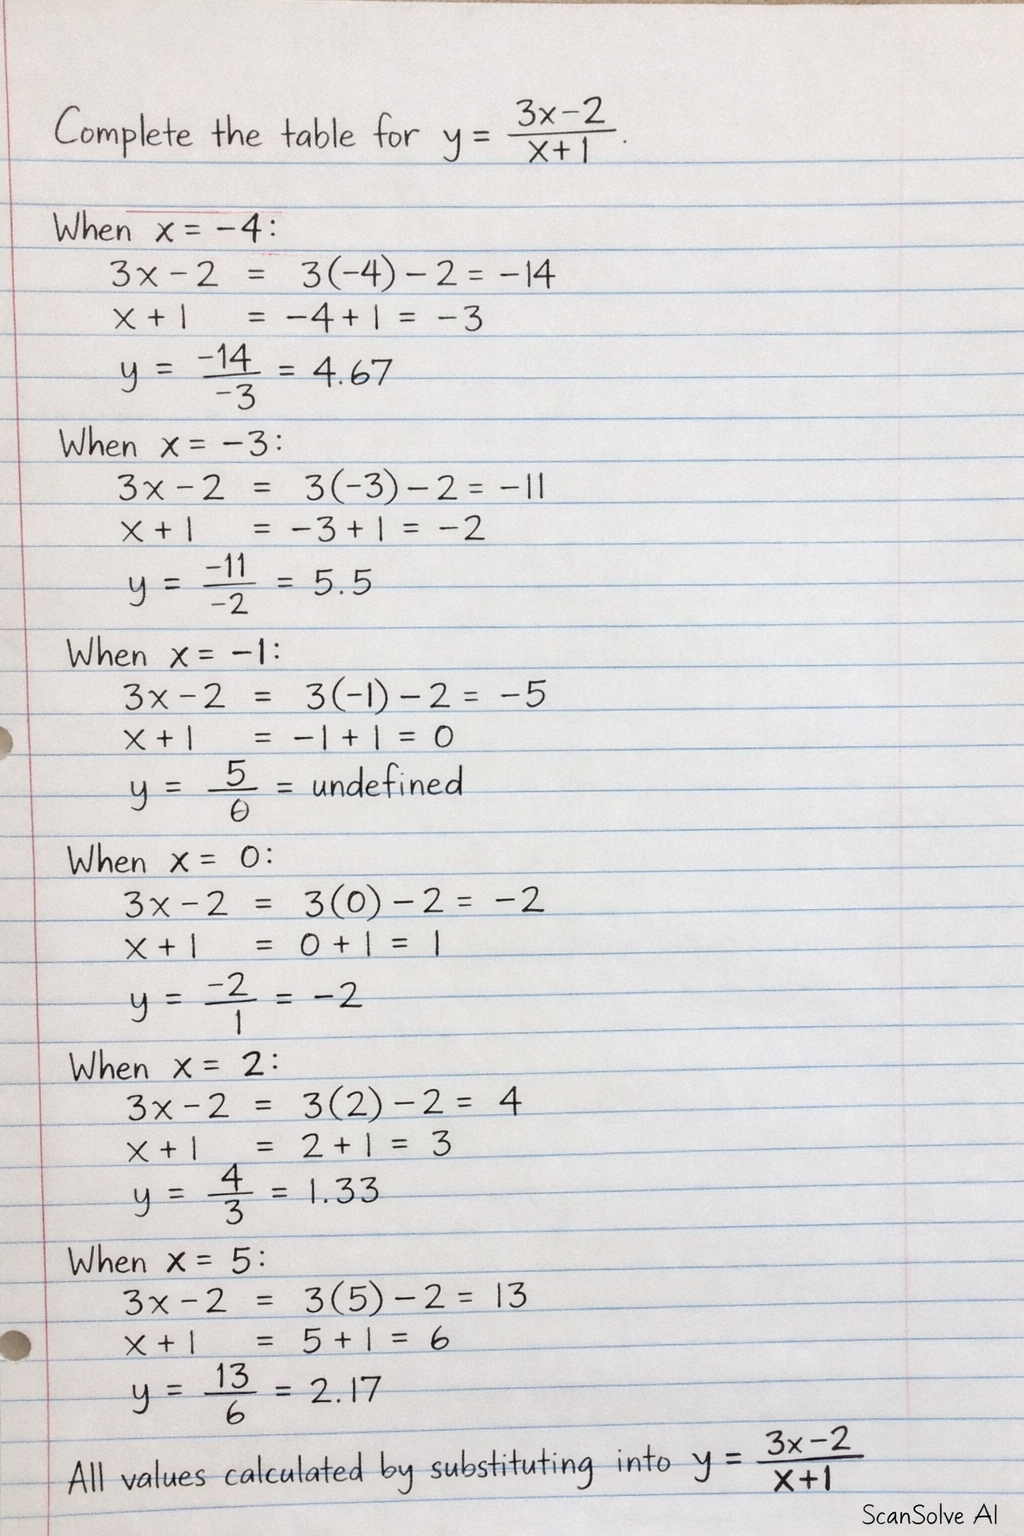 Complete the table for y = (3x-2)/(x+1).
When x = -4:
3x - 2 = 3(-4) - 2 = -14
x + 1 = -4 + 1 = -3
y = -14/-3 = 4.67
When x = -3:
3x - 2 = 3(-3) - 2 = -11
x + 1 = -3 + 1 = -2
y = -11/-2 = 5.5
When x = -1:
3x - 2 = 3(-1) - 2 = -5
x + 1 = -1 + 1 = 0
y = 5/0 = undefined
When x = 0:
3x - 2 = 3(0) - 2 = -2
x + 1 = 0 + 1 = 1
y = -2/1 = -2
When x = 2:
3x - 2 = 3(2) - 2 = 4
x + 1 = 2 + 1 = 3
y = 4/3 = 1.33
When x = 5:
3x - 2 = 3(5) - 2 = 13
x + 1 = 5 + 1 = 6
y = 13/6 = 2.17
All values calculated by substituting into y = (3x-2)/(x+1)
ScanSolve AI